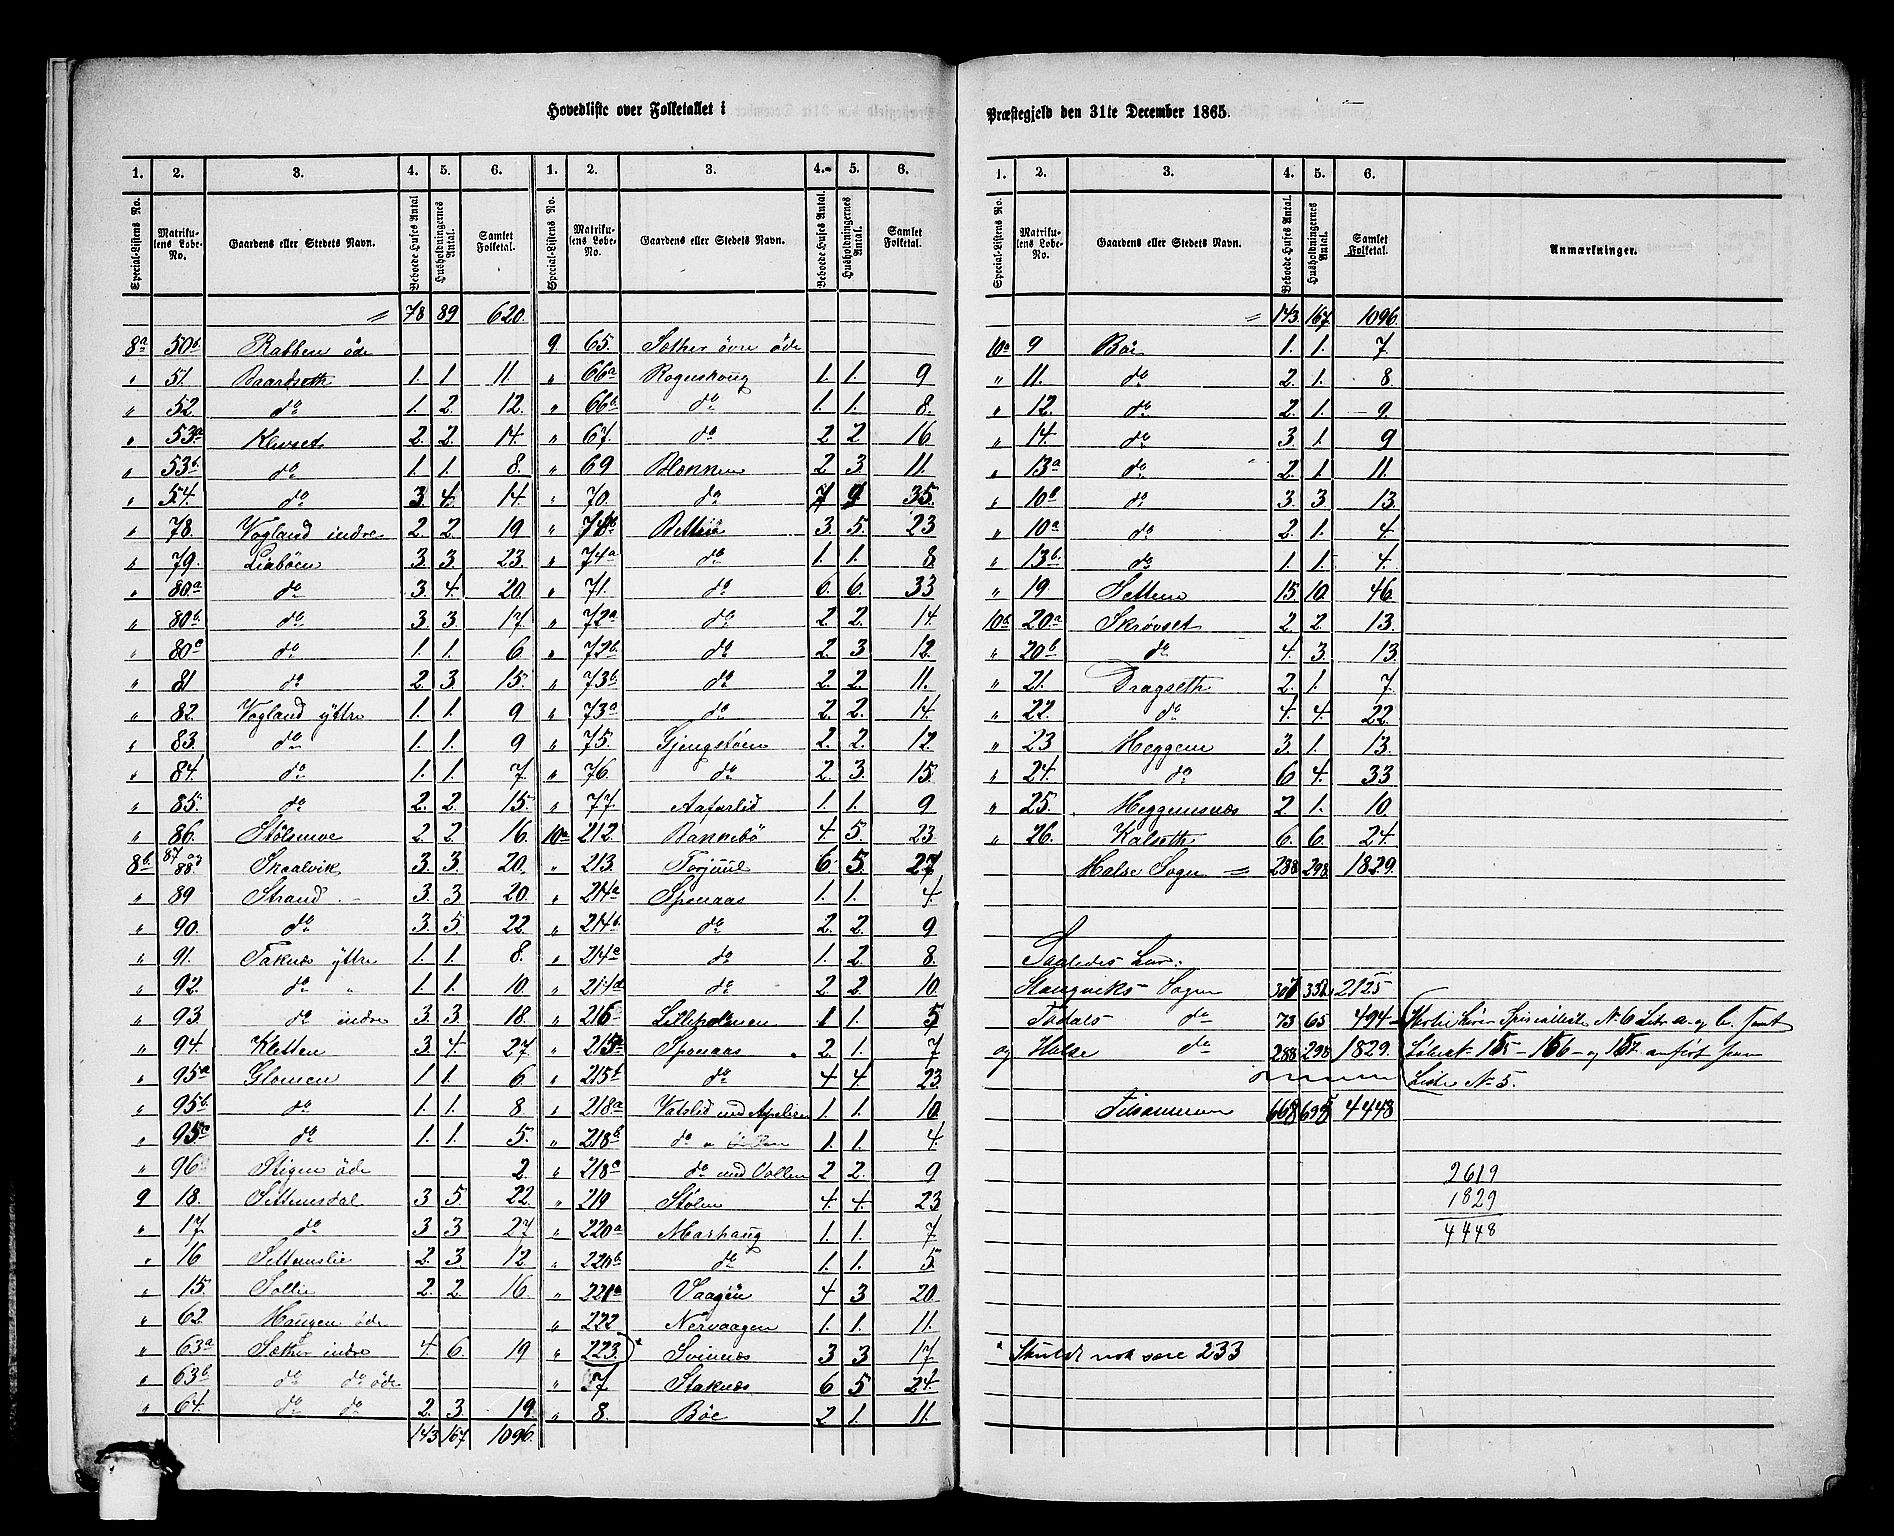 Hovedliste over Folketallet i
Præstegjeld den 31te December 1865.
1. 2. 3. 4. 5. 6. 1. 2. 3. 4. 5. 6.
Special-Listens No. Matrikulens Løbe-No. Gaardens eller Stedets Navn. Beboede Huses Antal. Husholdningernes Antal. Samlet Folketal. Special-Listens No. Matrikulens Løbe-No. Gaardens eller Stedets Navn. Beboede Huses Antal. Husholdningernes Antal. Samlet Folketal.
= 78 89 620.
8a 50b. Rabben öde 9 65. Sæther övre öde
" 51. Baardseth 1. 1 11. " 66a Rognskoug 1. 1. 9
" 52. do 1. 2. 12. " 66b. do 1. 1. 8.
" 53a Klevset 2. 2. 14. " 67. do 2 2 16
" 53b. do 1. 1. 8. " 69 Blennen 2 3 11.
" 54. do 3. 4. 14. " 70. do 7 9 35.
" 78. Vogland indre 2. 2. 19 " 74b Bettnö 3. 5. 23
" 79. Liaböen 3. 3. 23. " 74a do 1. 1. 8
" 80a do 3. 4. 20. " 71. do 6. 6. 33
" 80b. do 3 3. 17. " 72a do 2 2. 14.
" 80c do 1. 1. 6 " 72b. do 2. 3 12.
" 81 do 2. 3. 15. " 73b. do 2. 2. 11.
" 82. Vogland yttre 1. 1. 9 " 73a do 2. 2. 14.
" 83. do 1. 1. 9 " 75. Gjengstöen 2. 2. 12.
" 84. do 1. 1. 7 " 76. do 2. 3. 15.
" 85. do 2. 2. 15. " 77. Aafarlid 1. 1. 9
" 86. Stölsmoe 2. 2. 16. 10a 212. Bannebö 4. 5. 23
8b. 87 og 88. Skaalvik 3. 3. 20. " 213. Torjuul 6. 5. 27
" 89 Strand 3. 3 20. " 214a Sponaas 1. 1. 4.
" 90. do 3. 5. 22 " 214b. do 2. 2. 9
" 91. Taknæs yttre 1. 1. 8. " 214c do 1. 2. 8.
" 92. do " 1. 1. 10. " 214d do 2 2. 10.
" 93. do indre 3. 3. 18. " 216 Lilleholmen 1 1. 5
" 94. Kletten 3. 4. 27. " 215a Sponaas 2. 1. 7
" 95a Glomen 1. 1. 6. " 215b do 4 4. 23.
" 95b. do 1. 1. 8. " 218a Vatslid med 1. 1. 10.
" 95c do 1. 1. 5. " 218b. do 1. 1. 4.
" 96 Stigen öde 2. " 218c do med Vollen 2 2. 9
9 18. Settemsdal 3 5. 22. " 219 Stölen 4. 4. 23
" 17. do 3 3. 27. " 220a Marhaug 1. 1. 7
" 16 Settemslie 2. 3. 12. " 220b do 1. 1. 5.
" 15. Sollie 2. 2 16. " 221a Vaagen 4 3 20.
" 62. Haugen öde " 222 Nervaagen 1. 1. 11.
" 63a Sæther indre 4. 6. 19 " 223. Svinnæs 3 3 17
" 63b do do öde " 7 Staknæs 6 5 24.
" 64. do do 2. 3. 19. " 8. Böe 2 1. 11.
143 167. 1096.
1. 2. 3. 4. 5. 6.
Special-Listens No. Matrikulens Løbe-No. Gaardens eller Stedets Navn. Beboede Huses Antal. Husholdningernes Antal. Samlet Folketal. Anmærkninger.
= 143. 167. 1096.
10a 9 Böe 1. 1. 7.
" 11. do 2. 1. 8.
" 12. do 2. 1. 9.
" 14. do 3. 1. 9
" 13a do 2. 1 11.
" 10b do 3. 3 13.
" 10a do 2. 1. 4.
" 13b. do 1. 1. 4.
" 19. Settem 15. 10. 46.
10b. 20a Skrövset 2. 2. 13.
" 20b do 4. 3. 13.
" 21. Dragseth 2. 1. 7.
" 22. do 4. 4. 22.
" 23 Heggem 3. 1. 13.
" 24. do 6 4. 33
" 25. Heggemsnæs 2. 1. 10
" 26. Kalseth 6. 6. 24.
Halse Sogn = 288 298 1829.
Saaledes har:
Stangviks Sogn 2125
Todals do 73 65 494
og Halse do 288 298 1829.
Liste No 5.
Tilsammen 4448
2619
1829
4448
Skulde nok være 233